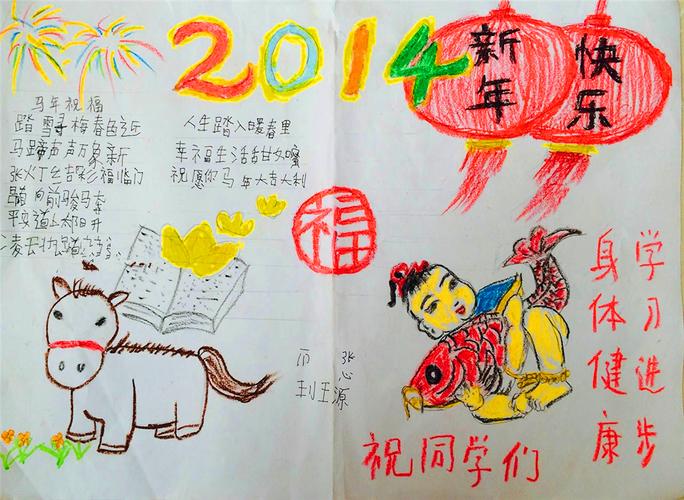 2014
新年
快乐
马年祝福
踏雪寻梅春近
马蹄声声万象新
张灯结彩福临门
向前骏马奔
平安道上太阳升
凌云壮踏
人生踏入暖春里
幸福生活甜如蜜
祝愿你马年大吉利
福
祝同学们
学习进步
身体健康